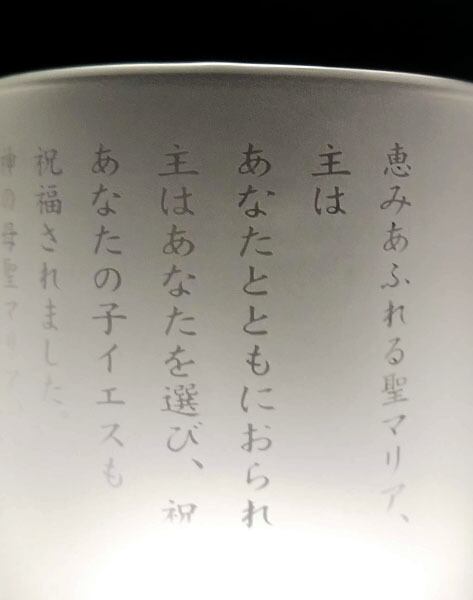 恵みあふれる聖マリア、
主は
あなたとともにおられ
主はあなたを選び、祝
あなたの子イエスも
祝福されました。
神の母聖マリア